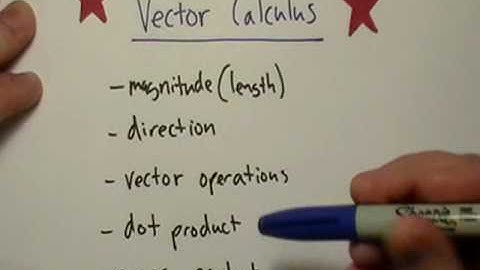 Vector Calculus
- magnitude (length)
- direction
- vector operations
- dot product
Sharpie